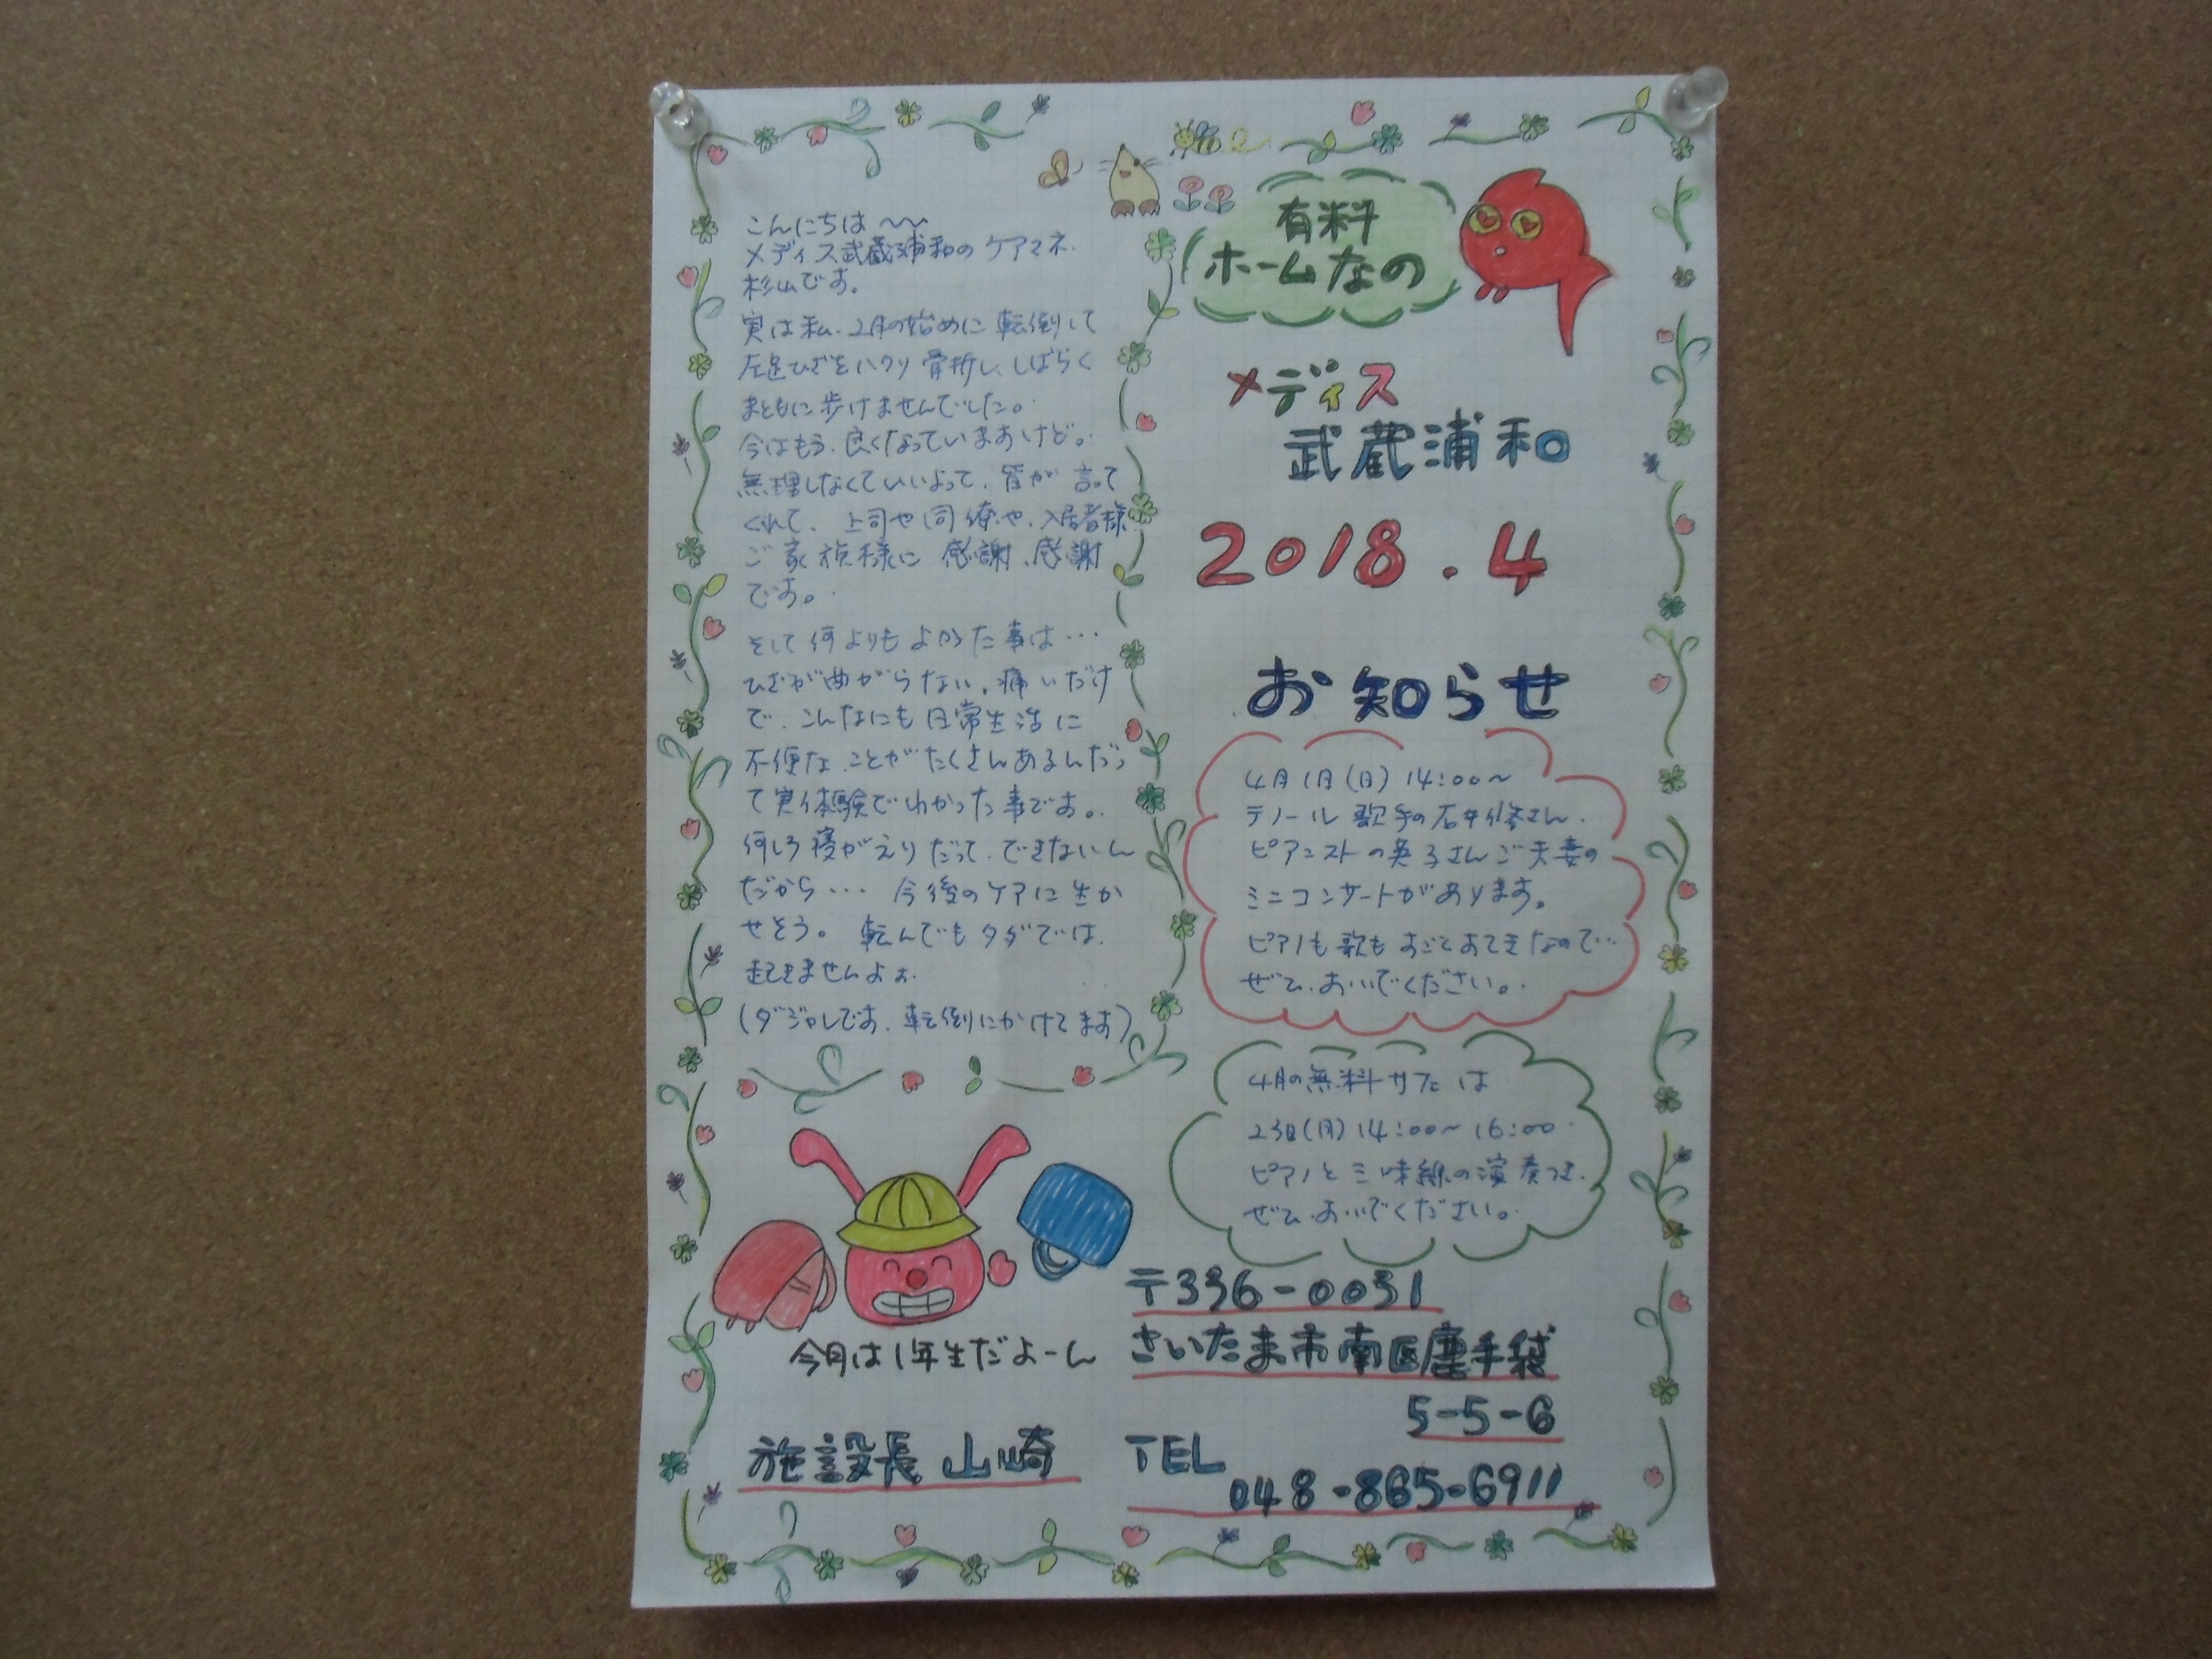 こんにちは〜〜
メディス武蔵浦和のケアマネ
杉山です。
実は私、2月の始めに転倒して
左足ひざをハクリ骨折し、しばらく
まともに歩けませんでした。
今はもう、良くなっていますけど。
無理しなくていいよって、皆が言って
くれて、上司や同僚や、入居者様
ご家族様に感謝、感謝
です。
そして何よりもよかった事は…
ひざが曲がらない、痛いだけ
で、こんなにも日常生活に
不便なことがたくさんあるんだっ
て実体験でわかった事です。
何しろ寝がえりだって、できないん
だから… 今後のケアに生か
せそう。 転んでもタダでは、
起きませんよぉ
(ダジャレです、転倒にかけてます)
有料
ホームなの
メディス
武蔵浦和
2018.4
お知らせ
4月1日(日) 14:00〜
テノール歌手の石井修さん、
ピアニストの英子さんご夫妻の
ミニコンサートがあります。
ピアノも歌もすごくすてきなので…
ぜひ、おいでください。
4月の無料サカは
23日(月) 14:00〜16:00
ピアノと三味線の演奏つき、
ぜひ、おいでください。
今月は1年生だよーん
〒336-0031
さいたま市南区鹿手袋
5-5-6
施設長 山崎
TEL
048-865-6911